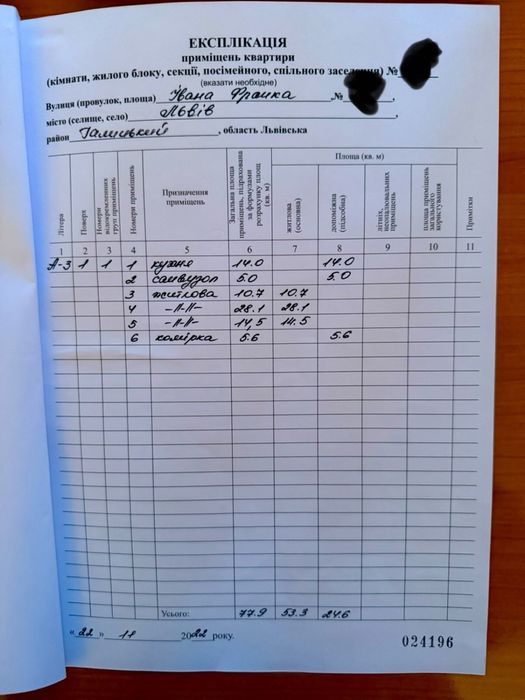 ЕКСПЛІКАЦІЯ
приміщень квартири
(кімнати, жилого блоку, секції, посімейного, спільного заселення) №
(вказати необхідне)
Вулиця (провулок, площа) Івана Франка, №
місто (селище, село) Львів,
район Галицький, область Львівська
Літера Поверх Номери відокремлених груп приміщень Номери приміщень Призначення приміщень Загальна площа приміщень, підрахована за формулами розрахунку площ (кв. м) Площа (кв. м) житлова (основна) допоміжна (підсобна) літніх, неопалювальних приміщень площа приміщень загального користування Примітки
1 2 3 4 5 6 7 8 9 10 11
А-3 1 1 1 кухня 14.0 14.0
2 санвузол 5.0 5.0
3 житлова 10.7 10.7
4 -//-//- 28.1 28.1
5 -//-//- 14,5 14.5
6 комірка 5.6 5.6
Усього: 77.9 53.3 24.6
« 22 » 11 2022 року.
024196